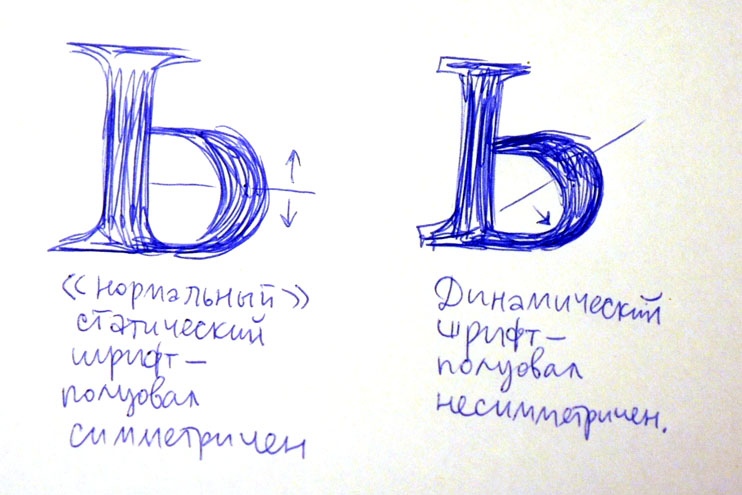 Ь
Ь
«нормальный»
статический
шрифт –
полуовал
симметричен
Динамический
шрифт –
полуовал
несимметричен.